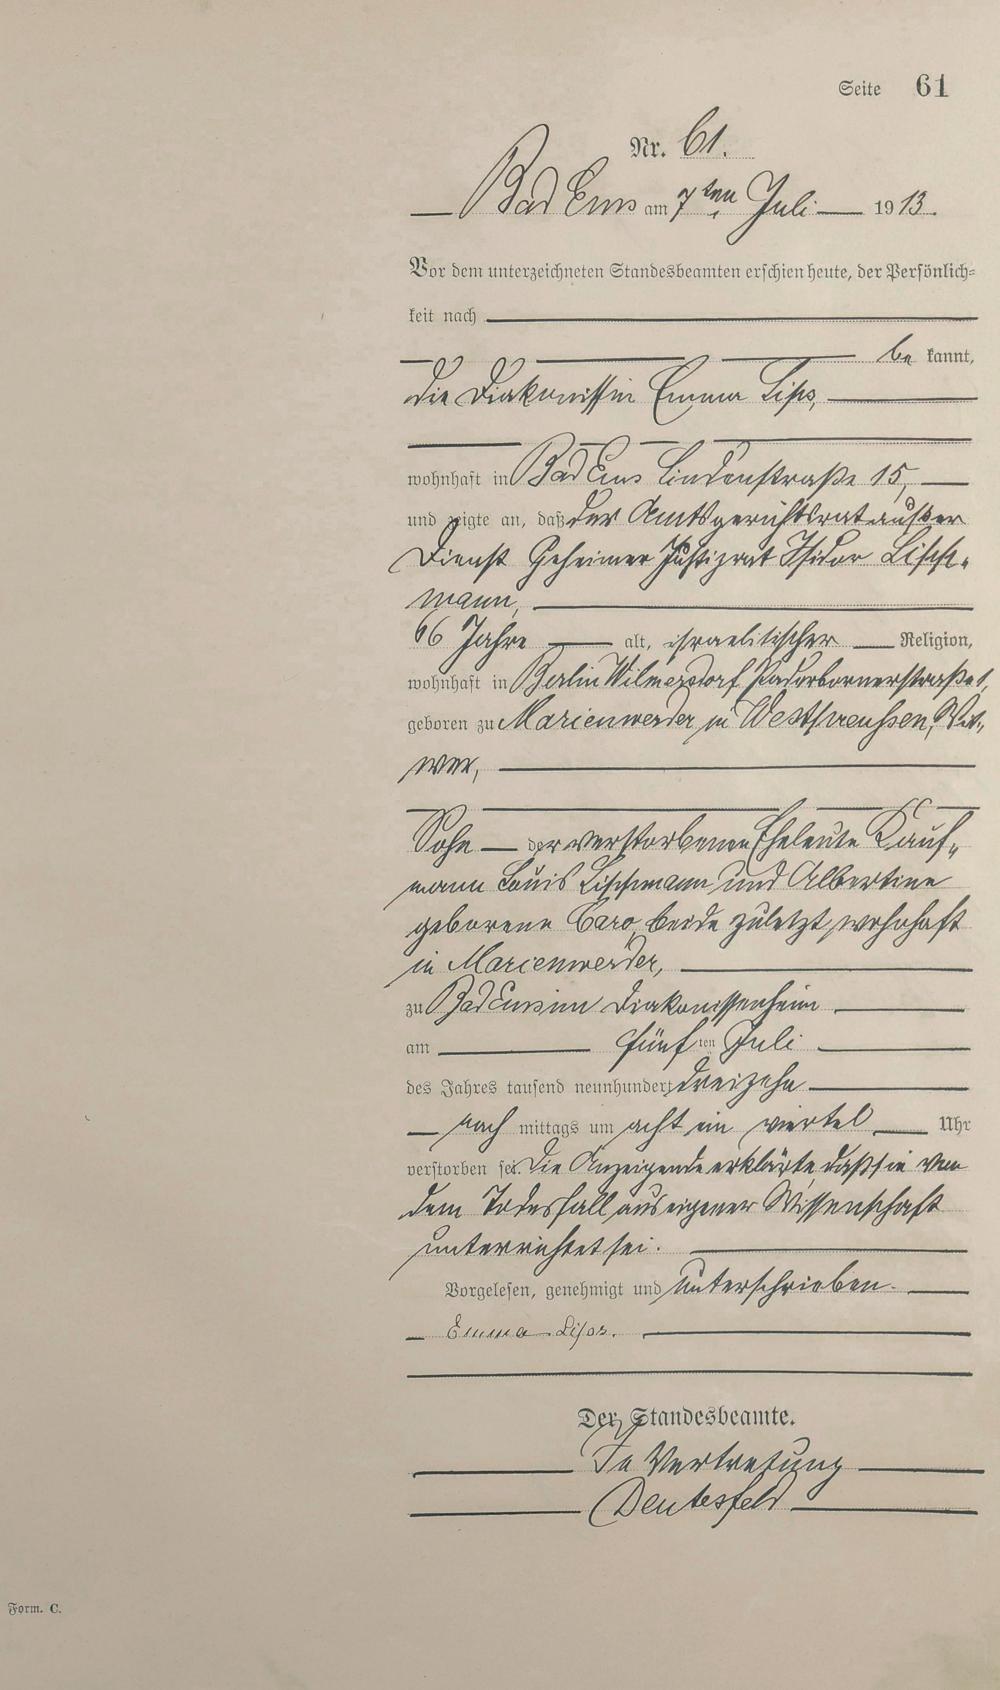 Seite 61
Nr. 61.
Bad Ems am 7ten Juli 1913.
Vor dem unterzeichneten Standesbeamten erschien heute, der Persönlich-
keit nach
be kannt,
die Diakonissin Emma Lips,
wohnhaft in Bad Ems Lindenstraße 15,
und zeigte an, daß der Amtsgerichtsrat außer
Dienst Geheimer Justizrat Isidor Lisch-
mann,
66 Jahre alt, israelitischer Religion,
wohnhaft in Berlin Wilmersdorf Paderbornerstraße 1,
geboren zu Marienwerder in Westpreussen, Wit-
wer,
Sohn der verstorbenen Eheleute Kauf-
mann Louis Lischmann und Albertine
geborene Caro, beide zuletzt wohnhaft
in Marienwerder,
zu Bad Ems im Diakonissenheim
am fünf ten Juli
des Jahres tausend neunhundert dreizehn
nach mittags um acht ein viertel Uhr
verstorben sei. Die Anzeigende erklärte, daß sie von
dem Todesfall aus eigener Wissenschaft
unterrichtet sei.
Vorgelesen, genehmigt und unterschrieben.
Emma Lips.
Der Standesbeamte.
In Vertretung
Deutesfeld
Form. C.